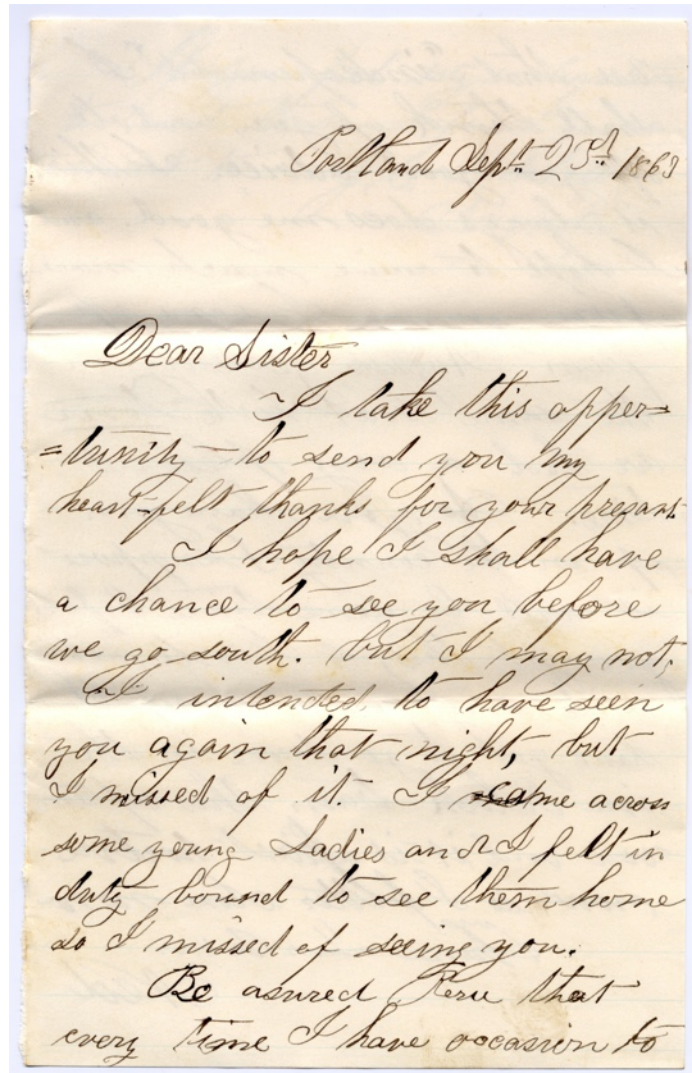 Portland Sept. 23d. 1863
Dear Sister
I take this opper=
=tunity - to send you my
heart-felt thanks for your presant.
I hope I shall have
a chance to see you before
we go south. but I may not,
I intended to have seen
you again that night, but
I missed of it. I came across
some young Ladies and I felt in
duty bound to see them home
so I missed of seeing you.
Be asured that
every time I have occasion to